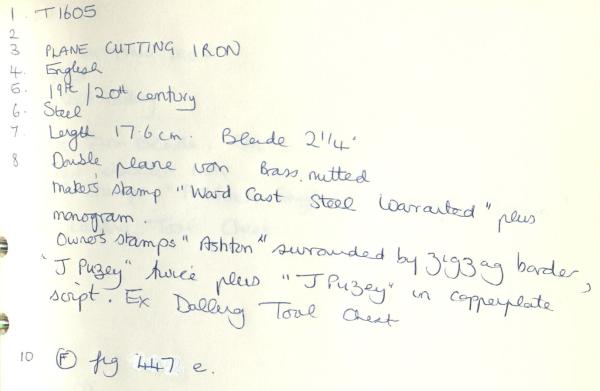 1 T1605
2
3 PLANE CUTTING IRON
4. English
5. 19th/20th century
6. Steel
7. Length 17.6cm. Blade 2 1/4"
8 Double plane iron Brass nutted
maker's stamp "Ward Cast Steel Warranted" plus
monogram.
Owner's stamps "Ashton" surrounded by zigzag border,
"J Puzey" twice plus "J Puzey" in copperplate
script. Ex Dalling Tool Chest
10 (F) fig 447 e.